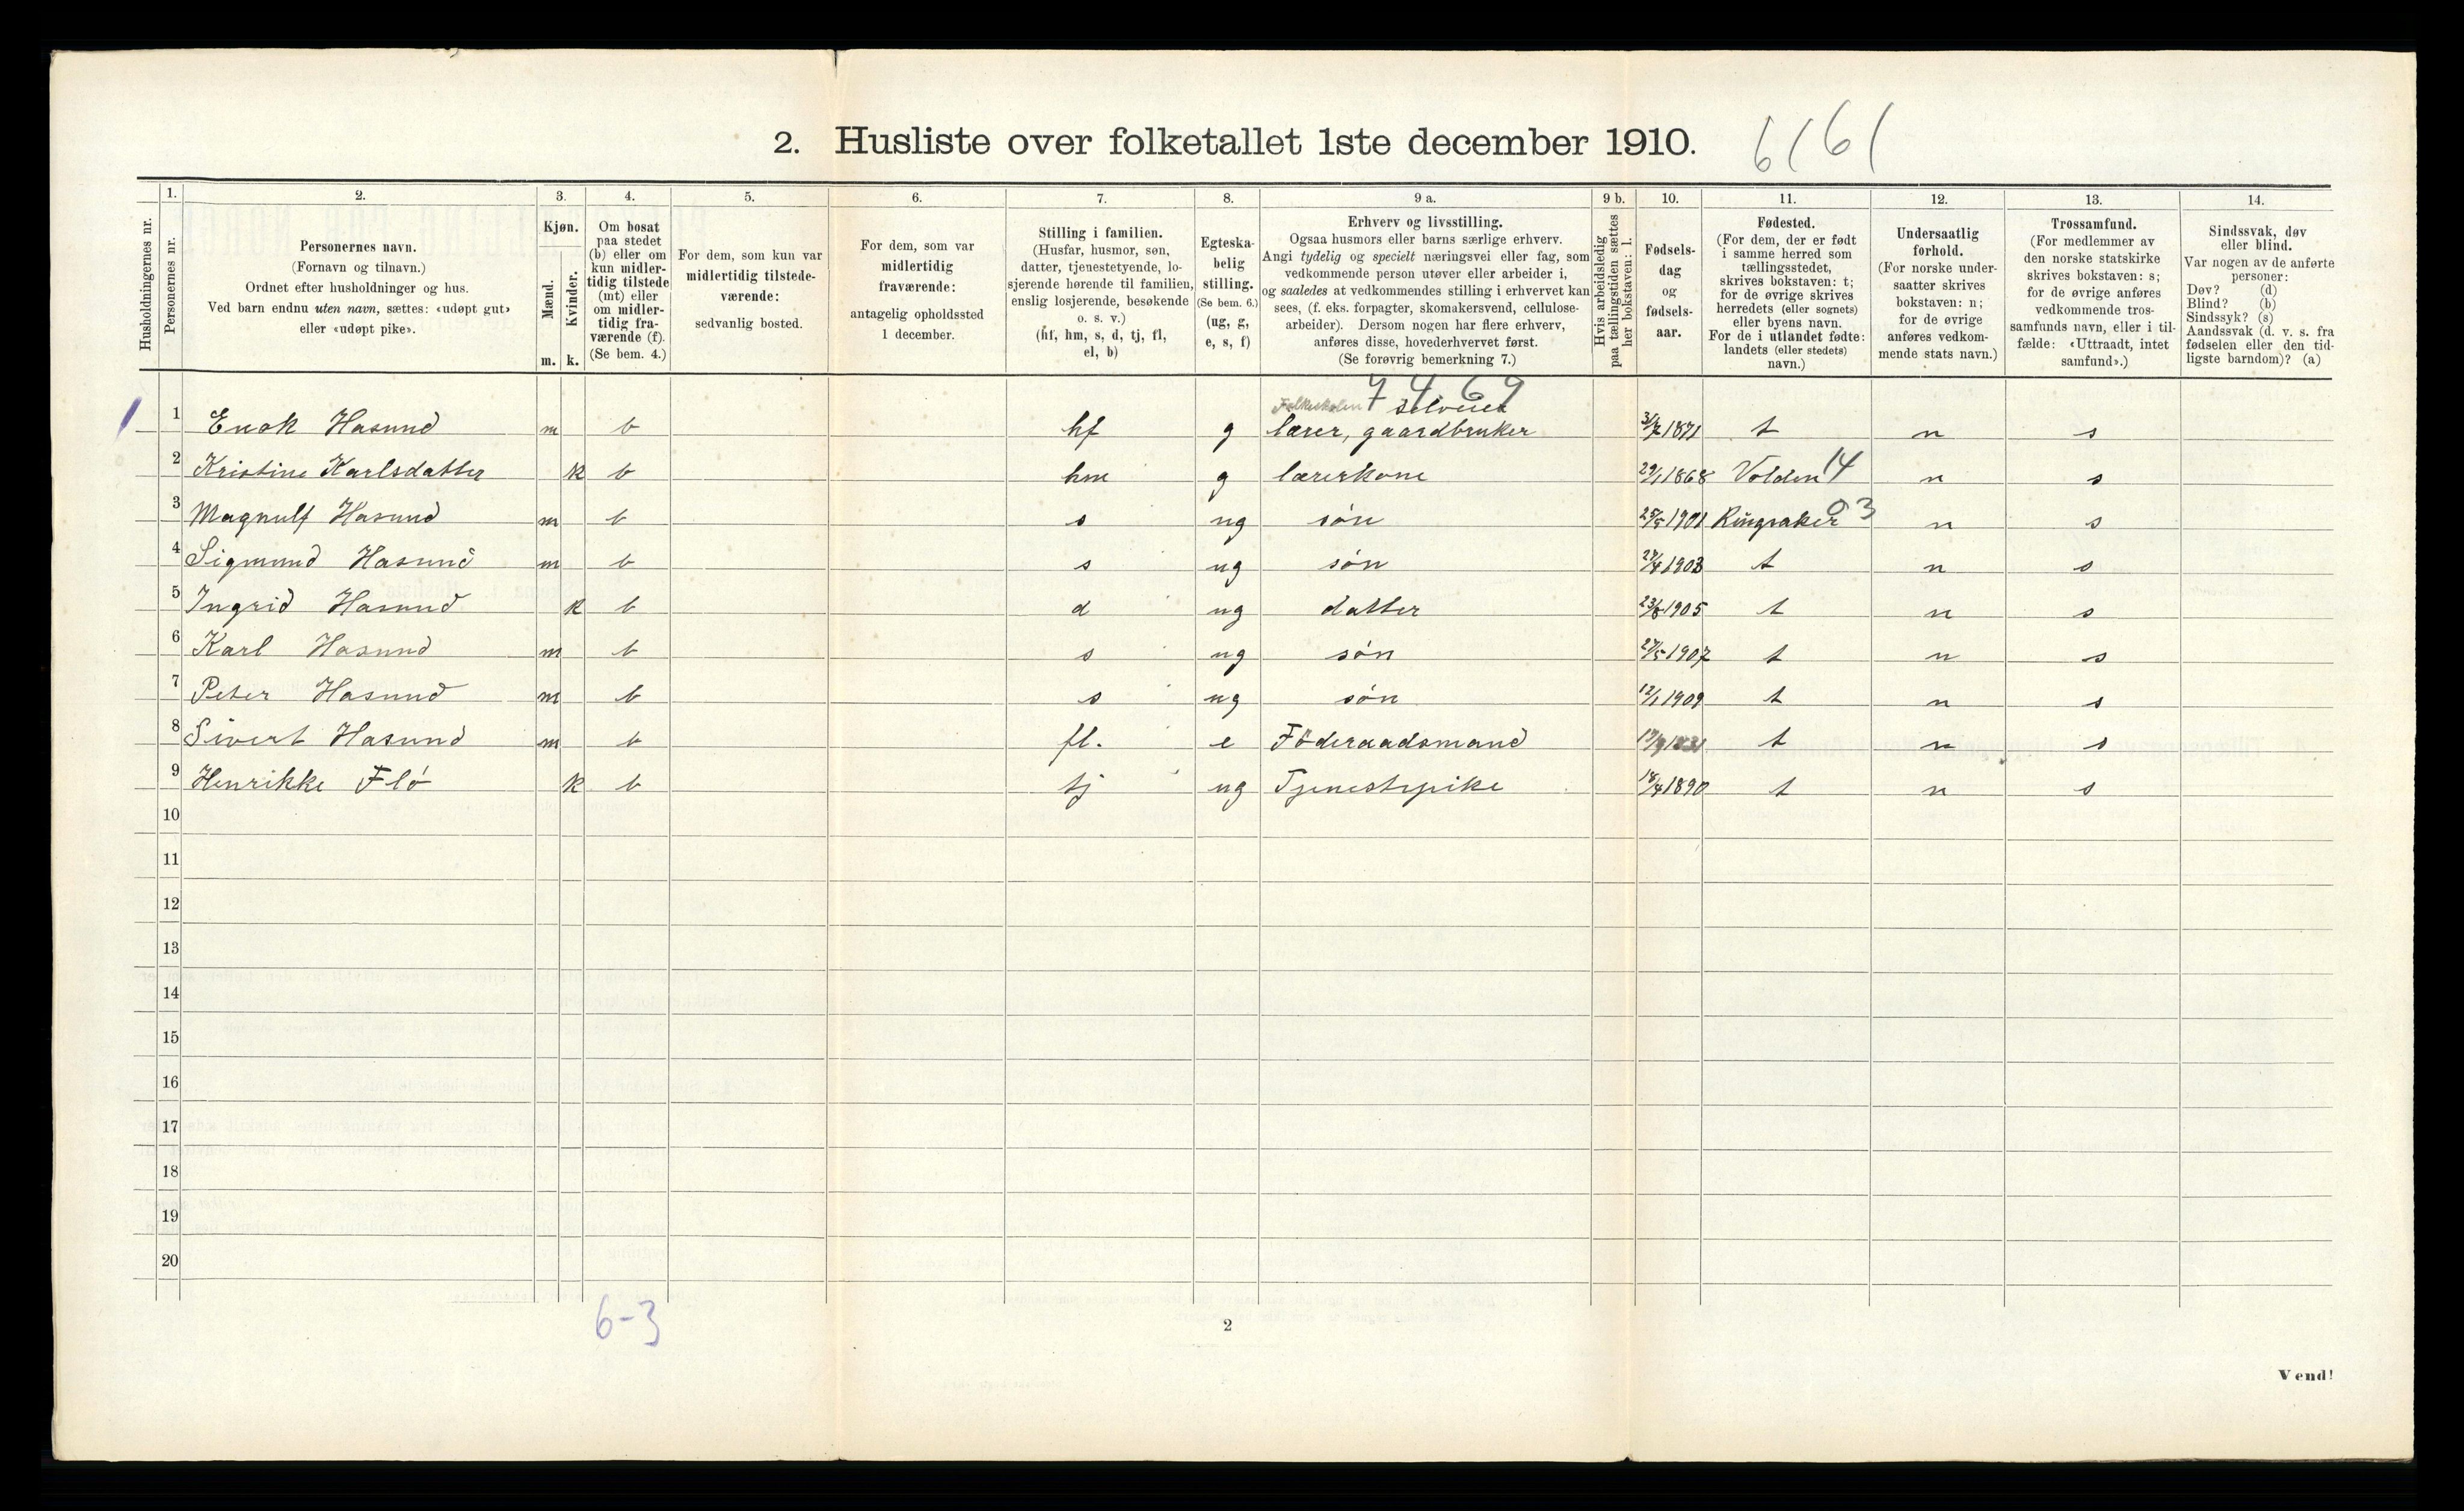 2. Husliste over folketallet 1ste december 1910. 6161
Husholdningernes nr.
1. Personernes nr.
2. Personernes navn.
(Fornavn og tilnavn.)
Ordnet efter husholdninger og hus.
Ved barn endnu uten navn, sættes: «udøpt gut»
eller «udøpt pike».
3. Kjøn.
Mænd. m.
Kvinder. k.
4. Om bosat
paa stedet
(b) eller om
kun midler-
tidig tilstede
(mt) eller
om midler-
tidig fra-
værende (f).
(Se bem. 4.)
5. For dem, som kun var
midlertidig tilstede-
værende:
sedvanlig bosted.
6. For dem, som var
midlertidig
fraværende:
antagelig opholdssted
1 december.
7. Stilling i familien.
(Husfar, husmor, søn,
datter, tjenestetyende, lo-
sjerende hørende til familien,
enslig losjerende, besøkende
o. s. v.)
(hf, hm, s, d, tj, fl,
el, b)
8. Egteska-
belig
stilling.
(Se bem. 6.)
(ug, g,
e, s, f)
9 a. Erhverv og livsstilling.
Ogsaa husmors eller barns særlige erhverv.
Angi tydelig og specielt næringsvei eller fag, som
vedkommende person utøver eller arbeider i,
og saaledes at vedkommendes stilling i erhvervet kan
sees, (f. eks. forpagter, skomakersvend, cellulose-
arbeider). Dersom nogen har flere erhverv,
anføres disse, hovederhvervet først.
(Se forøvrig bemerkning 7.)
9 b. Hvis arbeidsledig
paa tællingstiden sættes
her bokstaven: l.
10. Fødsels-
dag
og
fødsels-
aar.
11. Fødested.
(For dem, der er født
i samme herred som
tællingsstedet,
skrives bokstaven: t;
for de øvrige skrives
herredets (eller sognets)
eller byens navn.
For de i utlandet fødte:
landets (eller stedets)
navn.)
12. Undersaatlig
forhold.
(For norske under-
saatter skrives
bokstaven: n;
for de øvrige
anføres vedkom-
mende stats navn.)
13. Trossamfund.
(For medlemmer av
den norske statskirke
skrives bokstaven: s;
for de øvrige anføres
vedkommende tros-
samfunds navn, eller i til-
fælde: «Uttraadt, intet
samfund».)
14. Sindssvak, døv
eller blind.
Var nogen av de anførte
personer:
Døv? (d)
Blind? (b)
Sindssyk? (s)
Aandssvak (d. v. s. fra
fødselen eller den tid-
ligste barndom)? (a)
7 4. 69
Folkeskolen selveier
1 1 Enok Hasund m b hf g lærer, gaardbruker 3/7 1871 t n s
2 Kristine Karlsdatter k b hm g lærerkone 29/1 1868 Volden 14 n s
3 Magnulf Hasund m b s ug søn 25/5 1901 Ringsaker 03 n s
4 Sigmund Hasund m b s ug søn 27/4 1903 t n s
5 Ingrid Hasund k b d ug datter 23/8 1905 t n s
6 Karl Hasund m b s ug søn 27/5 1907 t n s
7 Peter Hasund m b s ug søn 12/1 1909 t n s
8 Sivert Hasund m b fl. e Föderaadsmand t n s
9 Henrikke Flö k b tj ug Tjenestepike 18/4 1890 t n s
10
11
12
13
14
15
16
17
18
19
20
6-3
2
Vend!